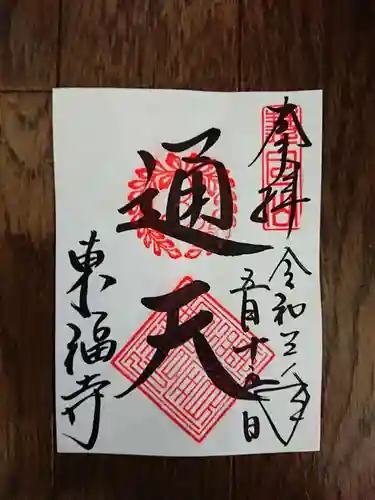 奉拝
令和三年
五月十五日
通天
東福寺